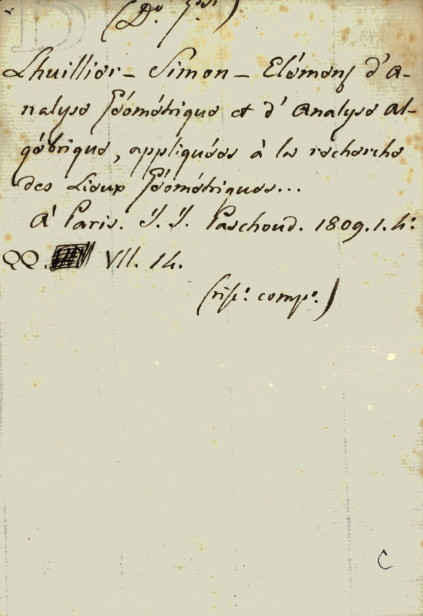 Lhuillier - Simon - Elémens d'A-
nalyse Géométrique et d'Analyse Al-
gébrique, appliquées à la recherche
des Lieux Géométriques...
À Paris. J. J. Paschoud. 1809. 1. 4:
QQ. VII. 14.
C